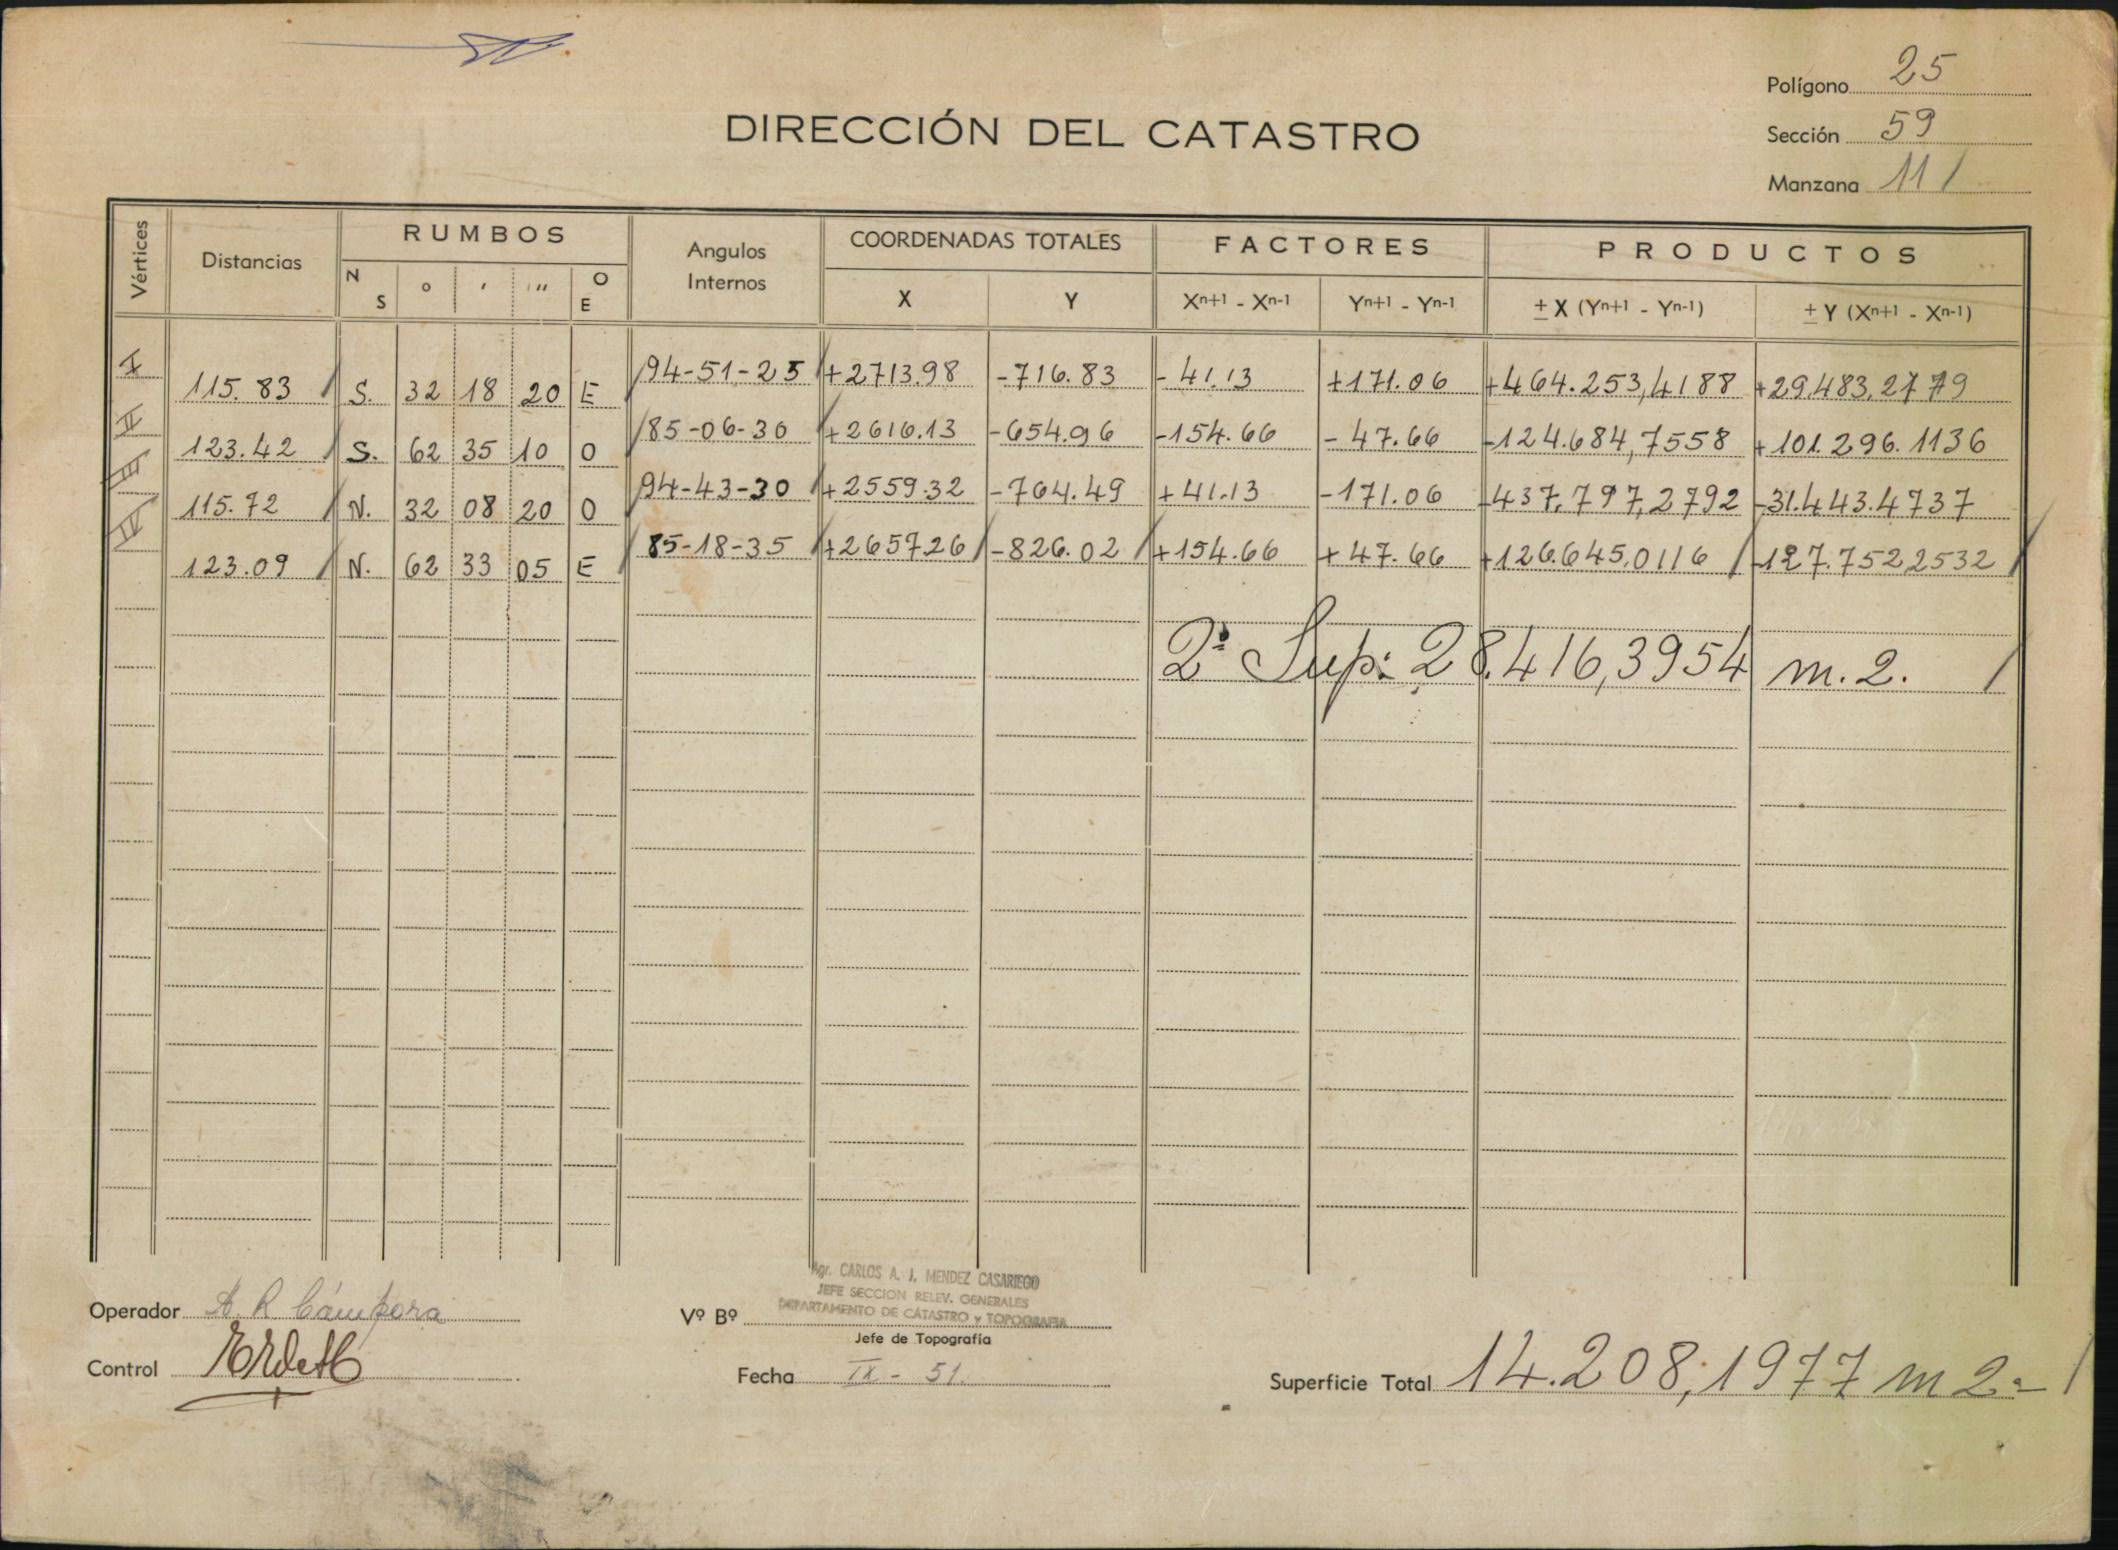 Polígono 25
DIRECCIÓN DEL CATASTRO
Sección 59
Manzana 11 /
Vértices Distancias RUMBOS Angulos Internos COORDENADAS TOTALES FACTORES PRODUCTOS
N S o ' '' O E X Y Xn+1 - Xn-1 Yn+1 - Yn-1 ± X (Yn+1 - Yn-1) ± Y (Xn+1 - Xn-1)
I 94-51-25 +2713.98 -716.83 -41.13 +171.06 +464.253,4188 +29.483,2779
115.83 S. 32 18 20 E
II 85-06-30 +2616.13 -654.96 -154.66 -47.66 -124.684,7558 +101.296.1136
123.42 S. 62 35 10 O
III 94-43-30 +2559.32 -764.49 +41.13 -171.06 -437.797,2792 -31.443.4737
115.72 N. 32 08 20 O
IV 85-18-35 +2657.26 -826.02 +154.66 +47.66 +126.645,0116 -127.752,2532
123.09 N. 62 33 05 E
2ª Sup: 28.416,3954 m.2.
Operador A. R. Cámpora
Control
Vº Bº
Agr. CARLOS A. J. MENDEZ CASARIEGO
JEFE SECCION RELEV. GENERALES
DEPARTAMENTO DE CATASTRO y TOPOGRAFIA
Jefe de Topografía
Fecha IX - 51.
Superficie Total 14.208,1977 m2=